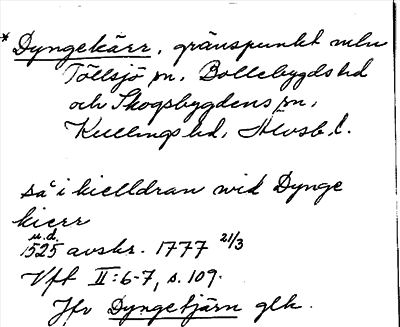 * Dyngekärr, gränspunkt mln
Töllsjö sn, Bollebygds hd
och Skogsbygdens sn,
Kullings hd, Älvsb. l.
så i kielldran wid Dynge
kierr
u.d.
1525 avskr. 1777 21/3
Vft II: 6-7, s. 109.
Jfr Dyngetjärn glk.